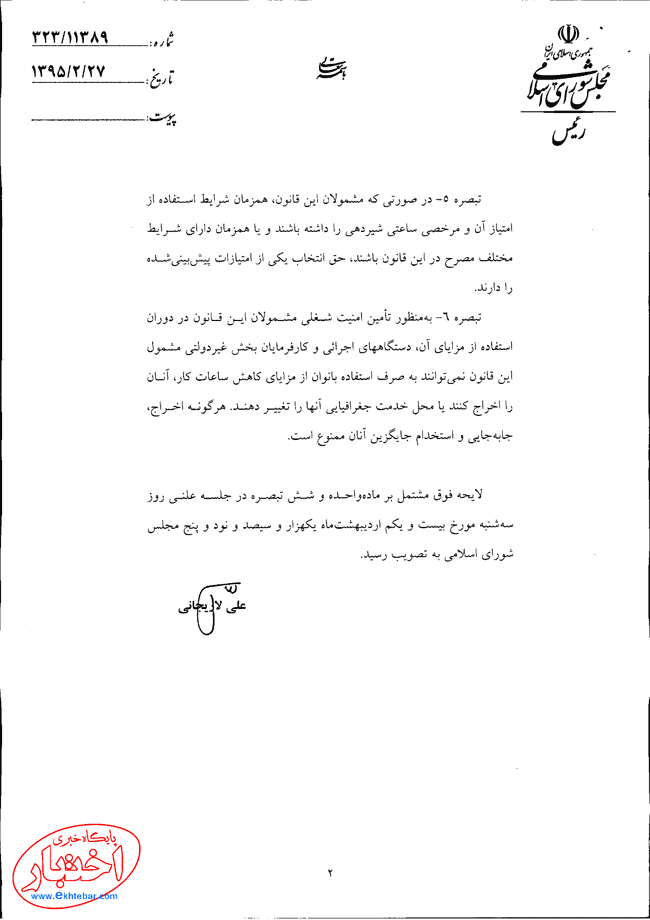 جمهوری اسلامی ایران
مجلس شورای اسلامی
رئیس
باسمه تعالی
شماره: ۳۲۳/۱۱۳۸۹
تاریخ: ۱۳۹۵/۲/۲۷
پیوست:
تبصره ۵- در صورتی که مشمولان این قانون، همزمان شرایط استفاده از
امتیاز آن و مرخصی ساعتی شیردهی را داشته باشند و یا همزمان دارای شرایط
مختلف مصرح در این قانون باشند، حق انتخاب یکی از امتیازات پیش‌بینی‌شده
را دارند.
تبصره ۶- به‌منظور تأمین امنیت شغلی مشمولان این قانون در دوران
استفاده از مزایای آن، دستگاههای اجرائی و کارفرمایان بخش غیردولتی مشمول
این قانون نمی‌توانند به صرف استفاده بانوان از مزایای کاهش ساعات کار، آنان
را اخراج کنند یا محل خدمت جغرافیایی آنها را تغییر دهند. هرگونه اخراج،
جابه‌جایی و استخدام جایگزین آنان ممنوع است.
لایحه فوق مشتمل بر ماده‌واحده و شش تبصره در جلسه علنی روز
سه‌شنبه مورخ بیست و یکم اردیبهشت‌ماه یکهزار و سیصد و نود و پنج مجلس
شورای اسلامی به تصویب رسید.
علی لاریجانی
۲
پایگاه خبری
اختبار
www.ekhtebar.com